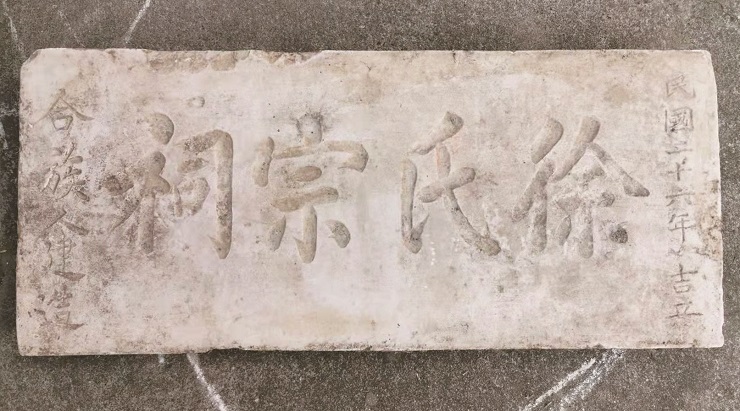 民國二十六年吉立
徐氏宗祠
合族人建造